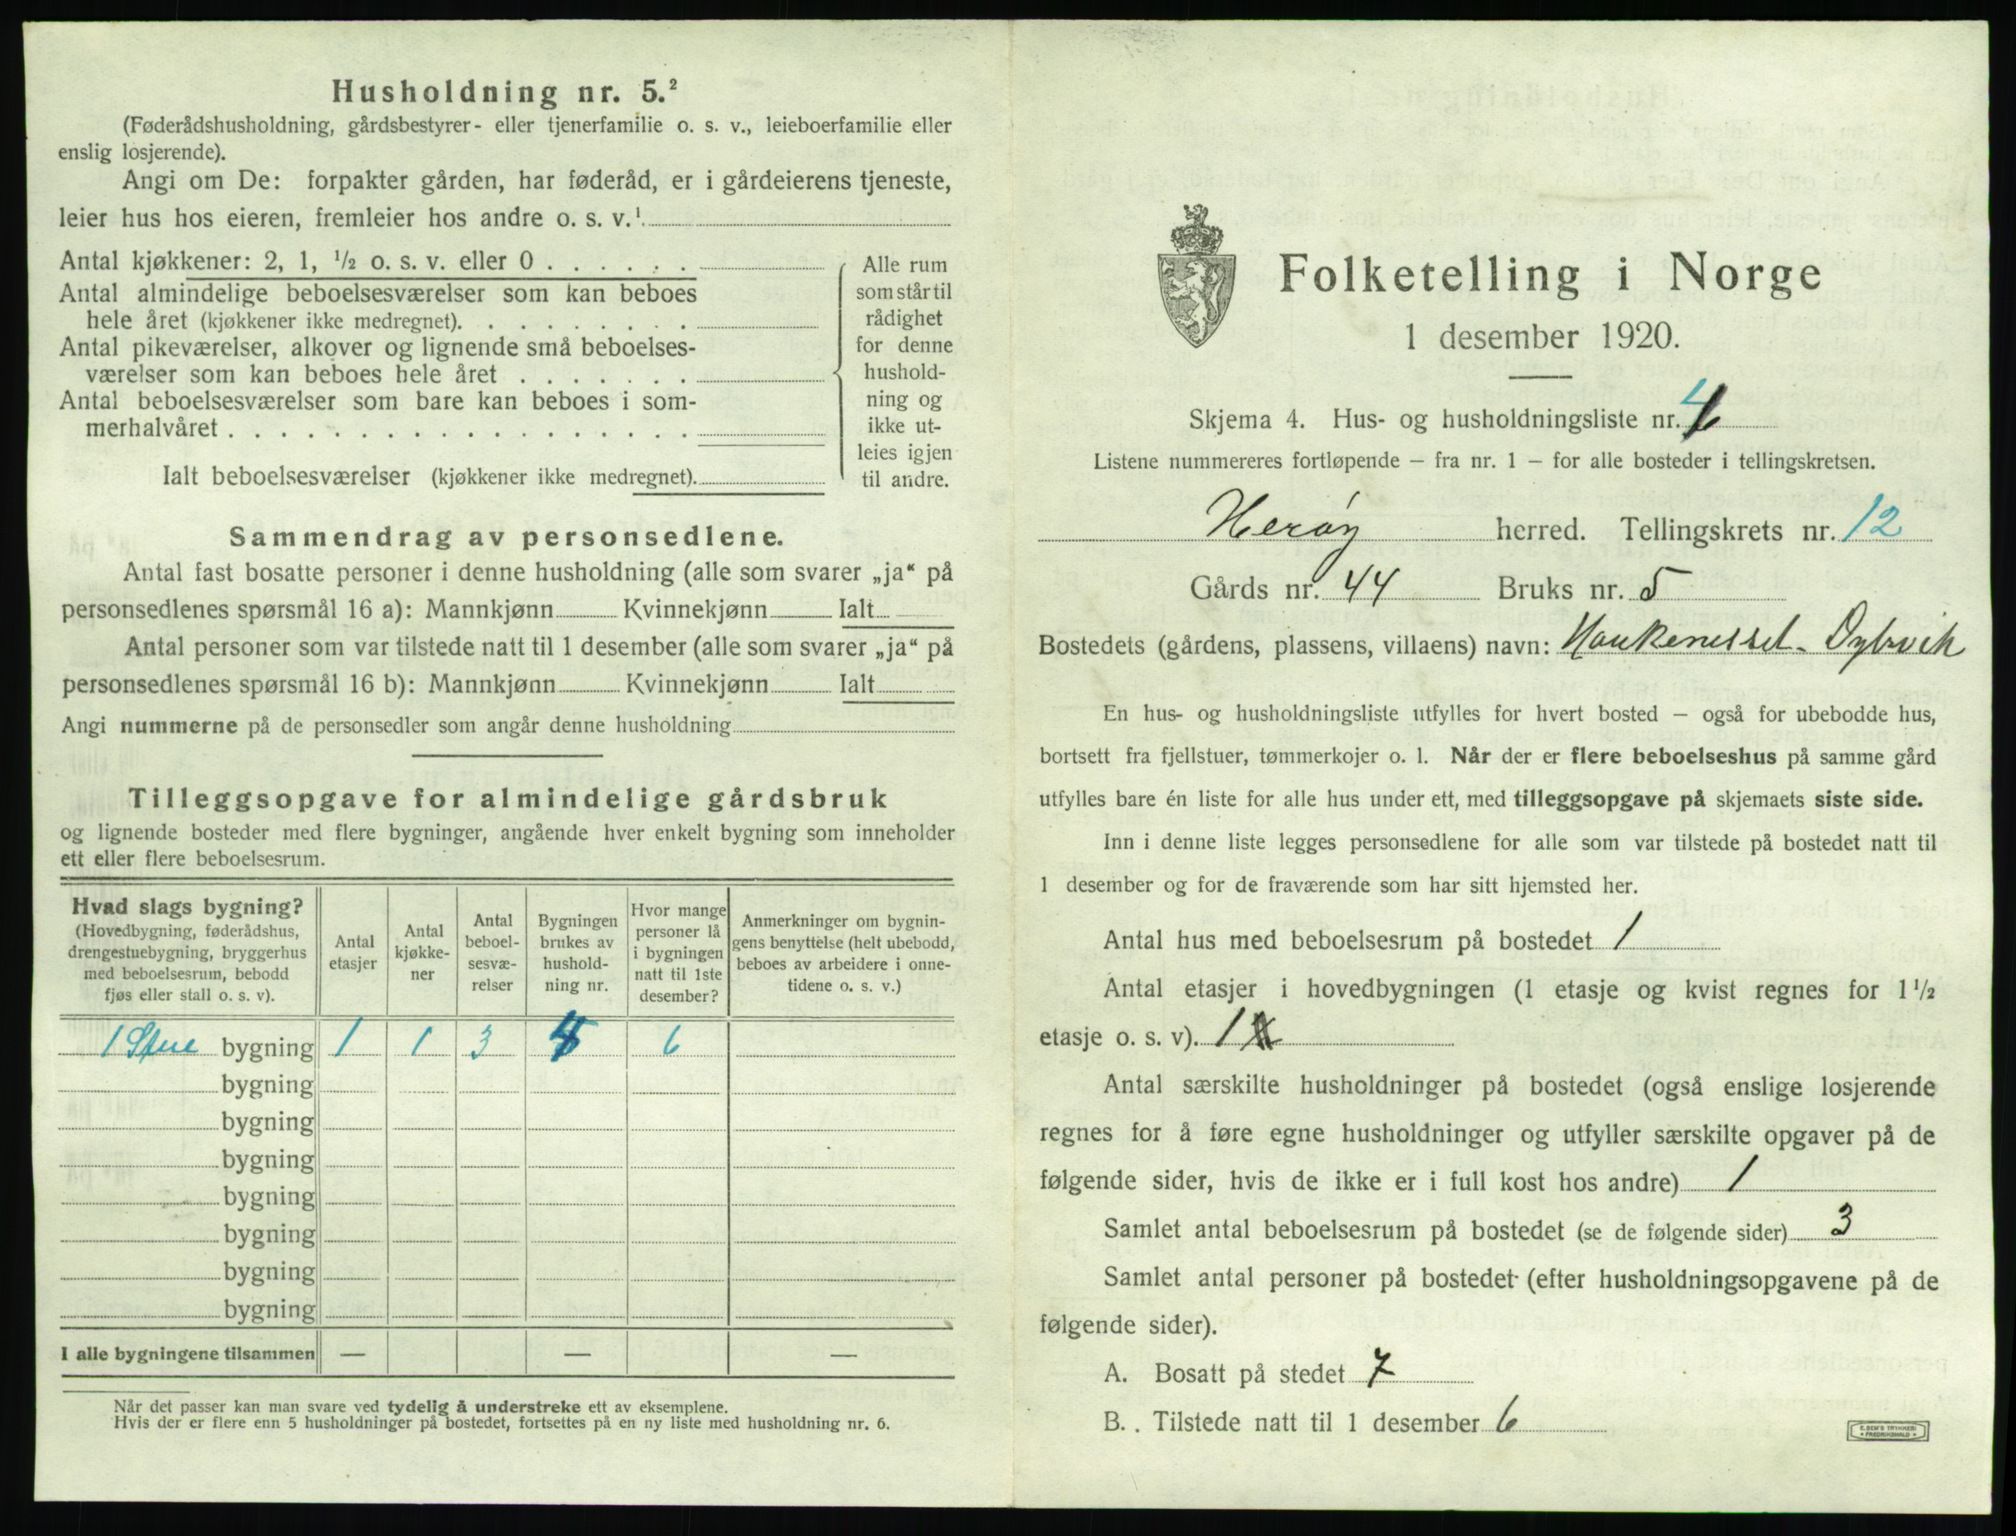 Husholdning nr. 5.²
(Føderådshusholdning, gårdsbestyrer- eller tjenerfamilie o. s. v., leieboerfamilie eller
enslig losjerende).
Angi om De: forpakter gården, har føderåd, er i gårdeierens tjeneste,
leier hus hos eieren, fremleier hos andre o. s. v.¹
Antal kjøkkener: 2, 1, ½ o. s. v. eller 0 . . . . . .
Antal almindelige beboelsesværelser som kan beboes
hele året (kjøkkener ikke medregnet). . . . . . . . .
Antal pikeværelser, alkover og lignende små beboelses-
værelser som kan beboes hele året . . . . . . .
Antal beboelsesværelser som bare kan beboes i som-
merhalvåret . . . . . . . . . . . . . . . . . .
Ialt beboelsesværelser (kjøkkener ikke medregnet).
Alle rum
som står til
rådighet
for denne
hushold-
ning og
ikke ut-
leies igjen
til andre.
Sammendrag av personsedlene.
Antal fast bosatte personer i denne husholdning (alle som svarer „ja“ på
personsedlenes spørsmål 16 a): Mannkjønn Kvinnekjønn Ialt
Antal personer som var tilstede natt til 1 desember (alle som svarer „ja“ på
personsedlenes spørsmål 16 b): Mannkjønn Kvinnekjønn Ialt
Angi nummerne på de personsedler som angår denne husholdning
Tilleggsopgave for almindelige gårdsbruk
og lignende bosteder med flere bygninger, angående hver enkelt bygning som inneholder
ett eller flere beboelsesrum.
Hvad slags bygning?
(Hovedbygning, føderådshus,
drengestuebygning, bryggerhus
med beboelsesrum, bebodd
fjøs eller stall o. s. v).
Antal
etasjer
Antal
kjøkke-
ner
Antal
beboel-
sesvæ-
relser
Bygningen
brukes av
hushold-
ning nr.
Hvor mange
personer lå
i bygningen
natt til 1ste
desember?
Anmerkninger om bygnin-
gens benyttelse (helt ubebodd,
beboes av arbeidere i onne-
tidene o. s. v.)
1 Stue bygning 1 1 3 6
bygning
bygning
bygning
bygning
bygning
bygning
bygning
I alle bygningene tilsammen — — —
Når det passer kan man svare ved tydelig å understreke ett av eksemplene.
Hvis der er flere enn 5 husholdninger på bostedet, fortsettes på en ny liste med husholdning nr. 6.
Folketelling i Norge
1 desember 1920.
Skjema 4. Hus- og husholdningsliste nr. 4
Listene nummereres fortløpende – fra nr. 1 – for alle bosteder i tellingskretsen.
Herøy herred. Tellingskrets nr. 12
Gårds nr. 44 Bruks nr. 5
Bostedets (gårdens, plassens, villaens) navn: Haukenesset - Dybvik
En hus- og husholdningsliste utfylles for hvert bosted – også for ubebodde hus,
bortsett fra fjellstuer, tømmerkojer o. l. Når der er flere beboelseshus på samme gård
utfylles bare én liste for alle hus under ett, med tilleggsopgave på skjemaets siste side.
Inn i denne liste legges personsedlene for alle som var tilstede på bostedet natt til
1 desember og for de fraværende som har sitt hjemsted her.
Antal hus med beboelsesrum på bostedet 1
Antal etasjer i hovedbygningen (1 etasje og kvist regnes for 1½
etasje o. s. v). 1
Antal særskilte husholdninger på bostedet (også enslige losjerende
regnes for å føre egne husholdninger og utfyller særskilte opgaver på de
følgende sider, hvis de ikke er i full kost hos andre) 1
Samlet antal beboelsesrum på bostedet (se de følgende sider) 3
Samlet antal personer på bostedet (efter husholdningsopgavene på de
følgende sider).
A. Bosatt på stedet 7
B. Tilstede natt til 1 desember 6
E. SEM'S TRYKKERI
FREDRIKSHALD